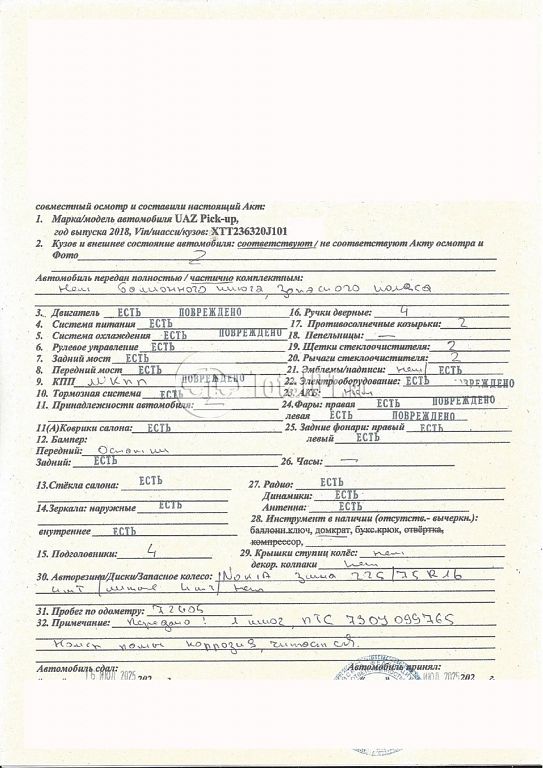 совместный осмотр и составили настоящий Акт:
1. Марка/модель автомобиля UAZ Pick-up,
год выпуска 2018, Vin/шасси/кузов: XTT236320J101
2. Кузов и внешнее состояние автомобиля: соответствуют / не соответствуют Акту осмотра и
Фото 2
Автомобиль передан полностью / частично комплектным:
Нет баллонного ключа, запасного колеса
3. Двигатель ЕСТЬ ПОВРЕЖДЕНО 16. Ручки дверные: 4
4. Система питания ЕСТЬ 17. Противосолнечные козырьки: 2
5. Система охлаждения ЕСТЬ ПОВРЕЖДЕНО 18. Пепельницы: —
6. Рулевое управление ЕСТЬ 19. Щетки стеклоочистителя: 2
7. Задний мост ЕСТЬ 20. Рычаги стеклоочистителя: 2
8. Передний мост ЕСТЬ 21. Эмблемы/надписи: нет/ ЕСТЬ
9. КПП МКПП ПОВРЕЖДЕНО 22. Электрооборудование: ЕСТЬ ПОВРЕЖДЕНО
10. Тормозная система ЕСТЬ 23. АКБ: нет
11. Принадлежности автомобиля: 24.Фары: правая ЕСТЬ ПОВРЕЖДЕНО
левая ЕСТЬ ПОВРЕЖДЕНО
11(А)Коврики салона: ЕСТЬ 25. Задние фонари: правый ЕСТЬ
12. Бампер: левый ЕСТЬ
Передний:
Задний: ЕСТЬ 26. Часы: —
13.Стёкла салона: ЕСТЬ 27. Радио: ЕСТЬ
Динамики: ЕСТЬ
14.Зеркала: наружные ЕСТЬ Антенна: ЕСТЬ
28. Инструмент в наличии (отсутств.- вычеркн.):
внутреннее ЕСТЬ баллонн.ключ, домкрат, букс.крюк, отвёртка,
компрессор,
15. Подголовники: 4 29. Крышки ступиц колёс: нет
декор. колпаки нет
30. Авторезина/Диски/Запасное колесо: NokiA зима 225/75 R16
4шт / 4шт / нет
31. Пробег по одометру: 72605
32. Примечание: Передано: 1 ключ, ПТС
коррозия,
Автомобиль сдал: Автомобиль принял:
16 ИЮЛ 2025 202 г. ИЮЛ 2025 202 г.